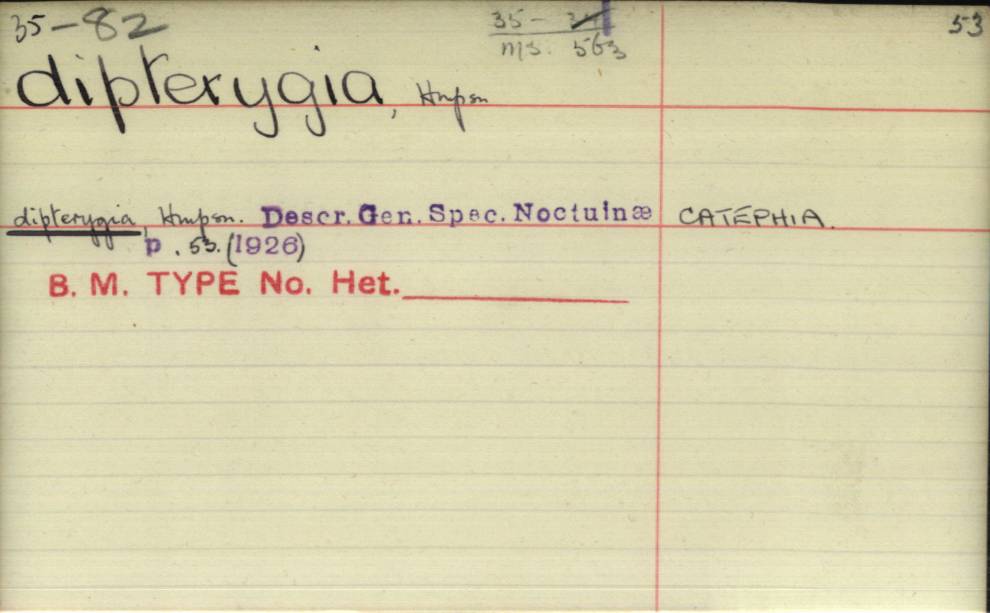 35-82
35-
ms. 563
53
dipterygia, Hmpsn
dipterygia, Hmpsn. Descr. Gen. Spec. Noctuinæ CATEPHIA.
p. 53. (1926)
B. M. TYPE No. Het.